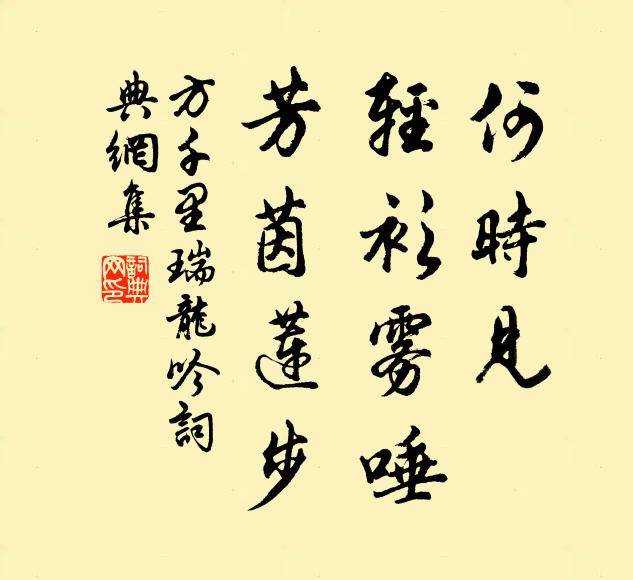 何時見
輕衫雾唾
芳茵蓮步
方千里瑞龍吟詞
典網集
詞典
网印